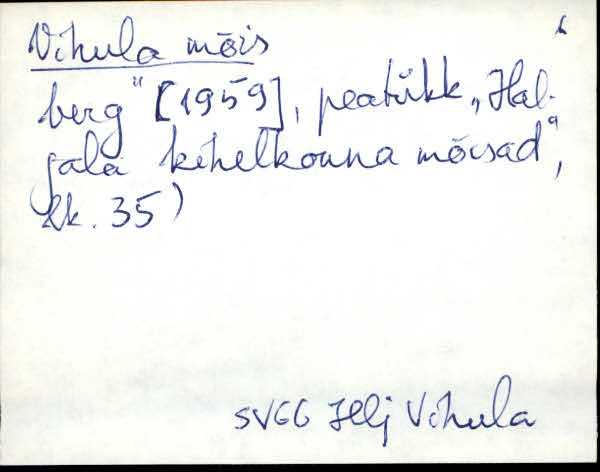 Vihula mõis
berg" [1959], peatükk „Hal-
jala kihelkonna mõisad",
lk. 35)
Vihula